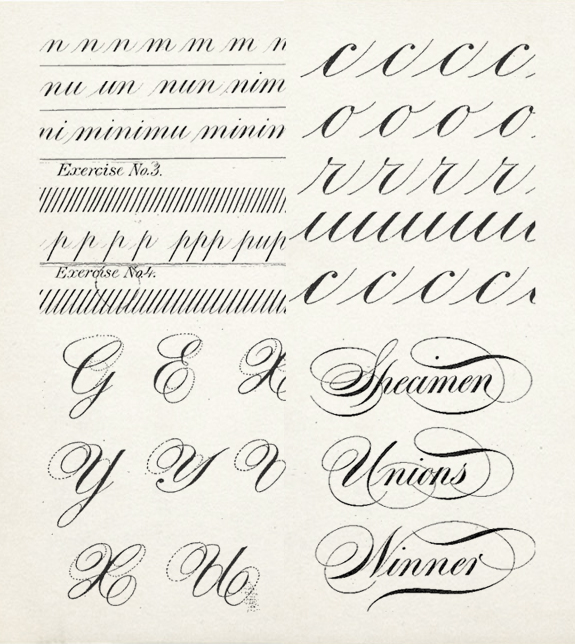 n n n m m m n
nu un nun nim
ni minimu minin
Exercise No.3.
p p p p ppp pup
Exercise No.4.
c c c c
o o o o
r r r r
uuuuuu
c c c c
G E X
Y Y V
X U
Specimen
Unions
Winner